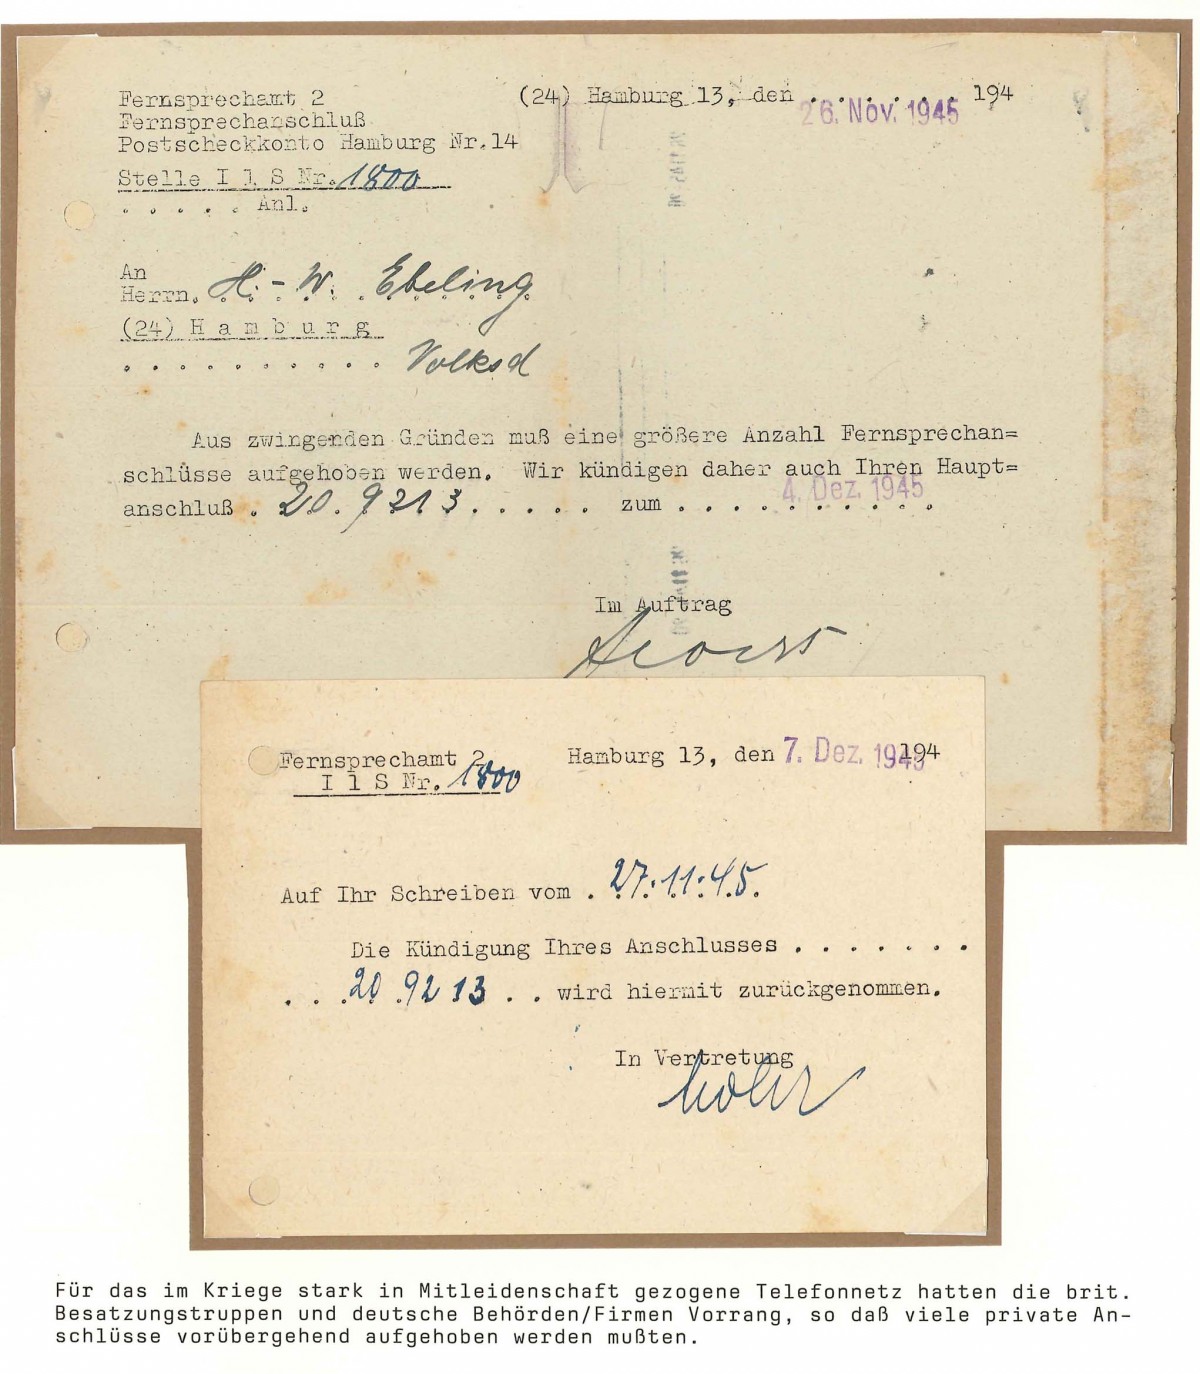 Fernsprechamt 2
(24) Hamburg 13, den . . . . . . 194
26. Nov. 1945
Fernsprechanschluß
Postscheckkonto Hamburg Nr.14
Stelle I 1 S Nr. 1800
. . . . . Anl.
An
Herrn. H.-W. Ebeling
(24) H a m b u r g
. . . . . . . . . . Volksd
Aus zwingenden Gründen muß eine größere Anzahl Fernsprechan=
schlüsse aufgehoben werden. Wir kündigen daher auch Ihren Haupt=
anschluß . 20.9213 . . . . . zum . . . . . . . . . .
4. Dez. 1945
Im Auftrag
Fernsprechamt 2 Hamburg 13, den 7. Dez. 1945 194
I 1 S Nr. 1800
Auf Ihr Schreiben vom . 27.11.45.
Die Kündigung Ihres Anschlusses . . . . . . .
. . . 20 . 92 13 . . wird hiermit zurückgenommen.
In Vertretung
Für das im Kriege stark in Mitleidenschaft gezogene Telefonnetz hatten die brit.
Besatzungstruppen und deutsche Behörden/Firmen Vorrang, so daß viele private An-
schlüsse vorübergehend aufgehoben werden mußten.